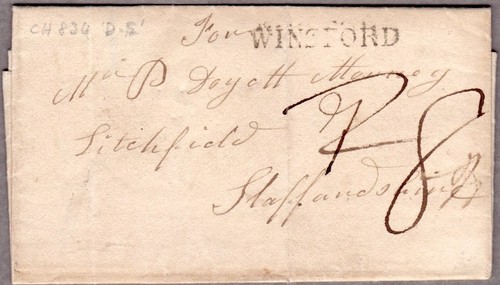 CH 834 'D-E'
For
WINSFORD
Mr P Dyott Attorney
Litchfield
Staffordshire
8